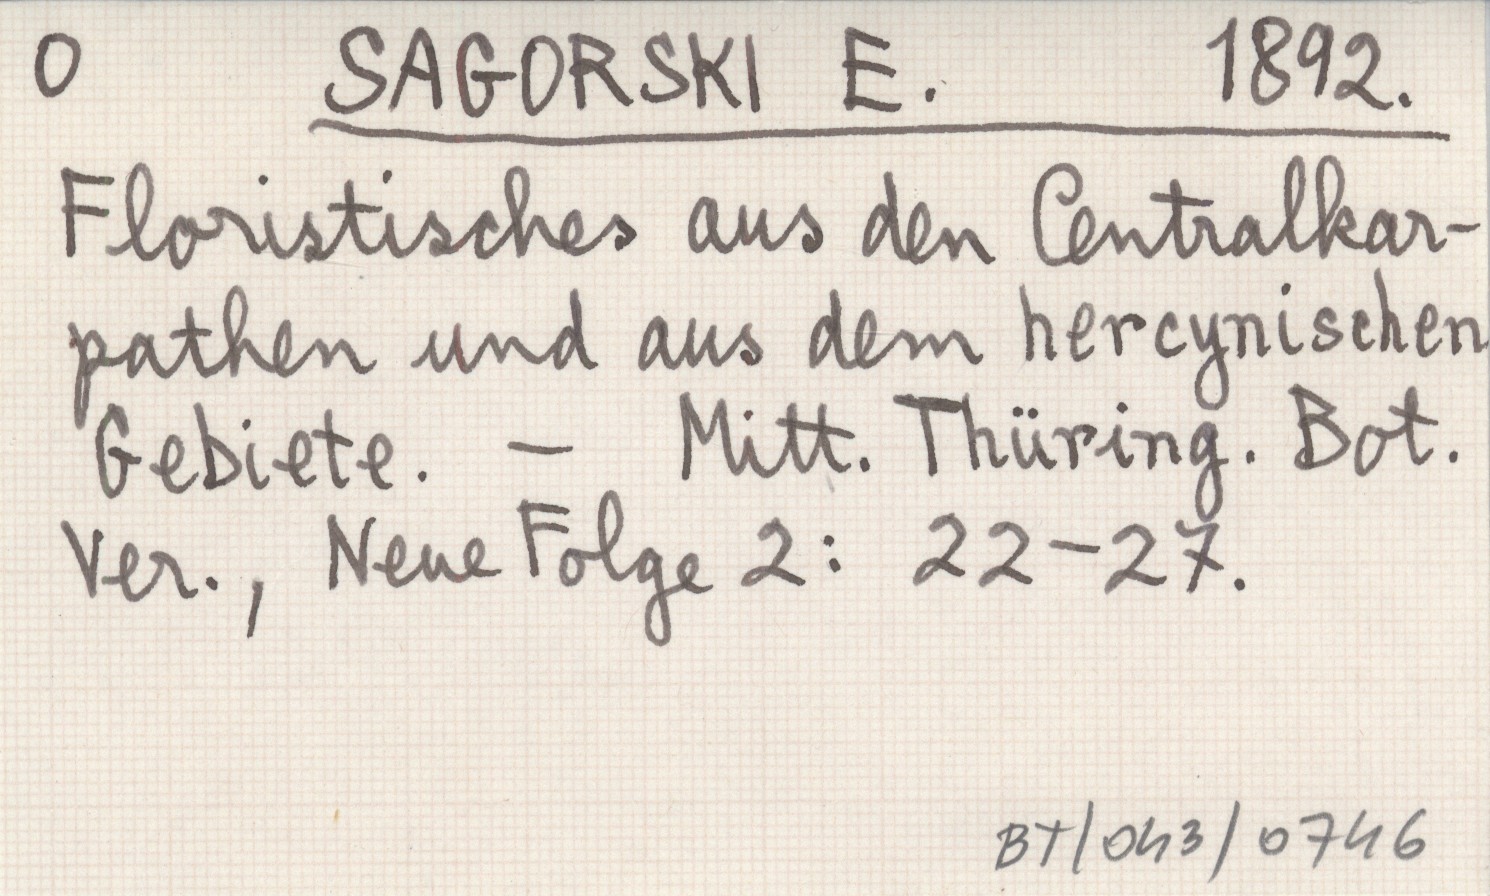 O SAGORSKI E. 1892.
Floristisches aus den Centralkar-
pathen und aus dem hercynischen
Gebiete. — Mitt. Thüring. Bot.
Ver., Neue Folge 2: 22-27.
BT/043/0746